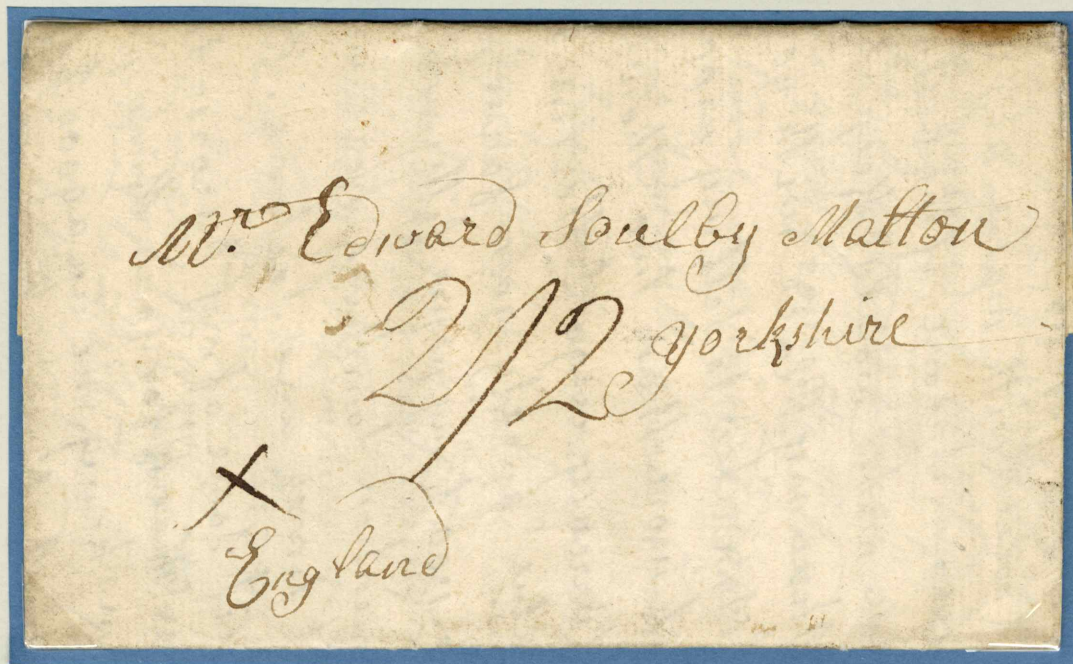 Mr. Edward Soulby Malton
2/2 Yorkshire
X
England